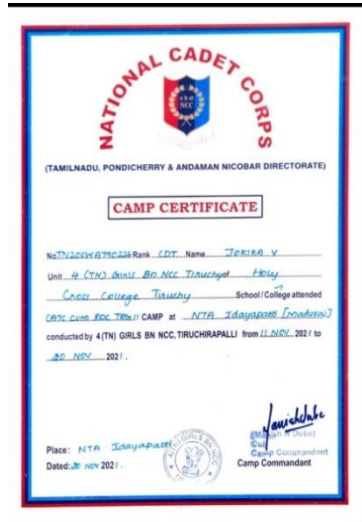 NATIONAL CADET CORPS
NCC
(TAMILNADU, PONDICHERRY & ANDAMAN NICOBAR DIRECTORATE)
CAMP CERTIFICATE
No Rank CDT Name JOKIKA V
Unit 4 (TN) Girls Bn NCC Tiruchy of Holy
Cross College Tiruchy School / College attended
CATC CUM RDC CAMP at NTA Idayapatti [Madurai]
conducted by 4 (TN) GIRLS BN NCC, TIRUCHIRAPALLI from 11 NOV 2021 to
20 NOV 2021.
Camp Commandant
Place: NTA Idayapatti
Dated: 20 NOV 2021. Camp Commandant